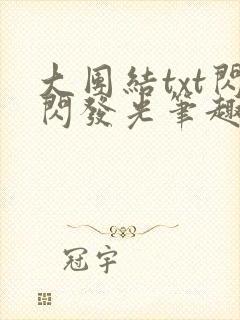 大團結txt閃
閃發光筆趣
冠宇